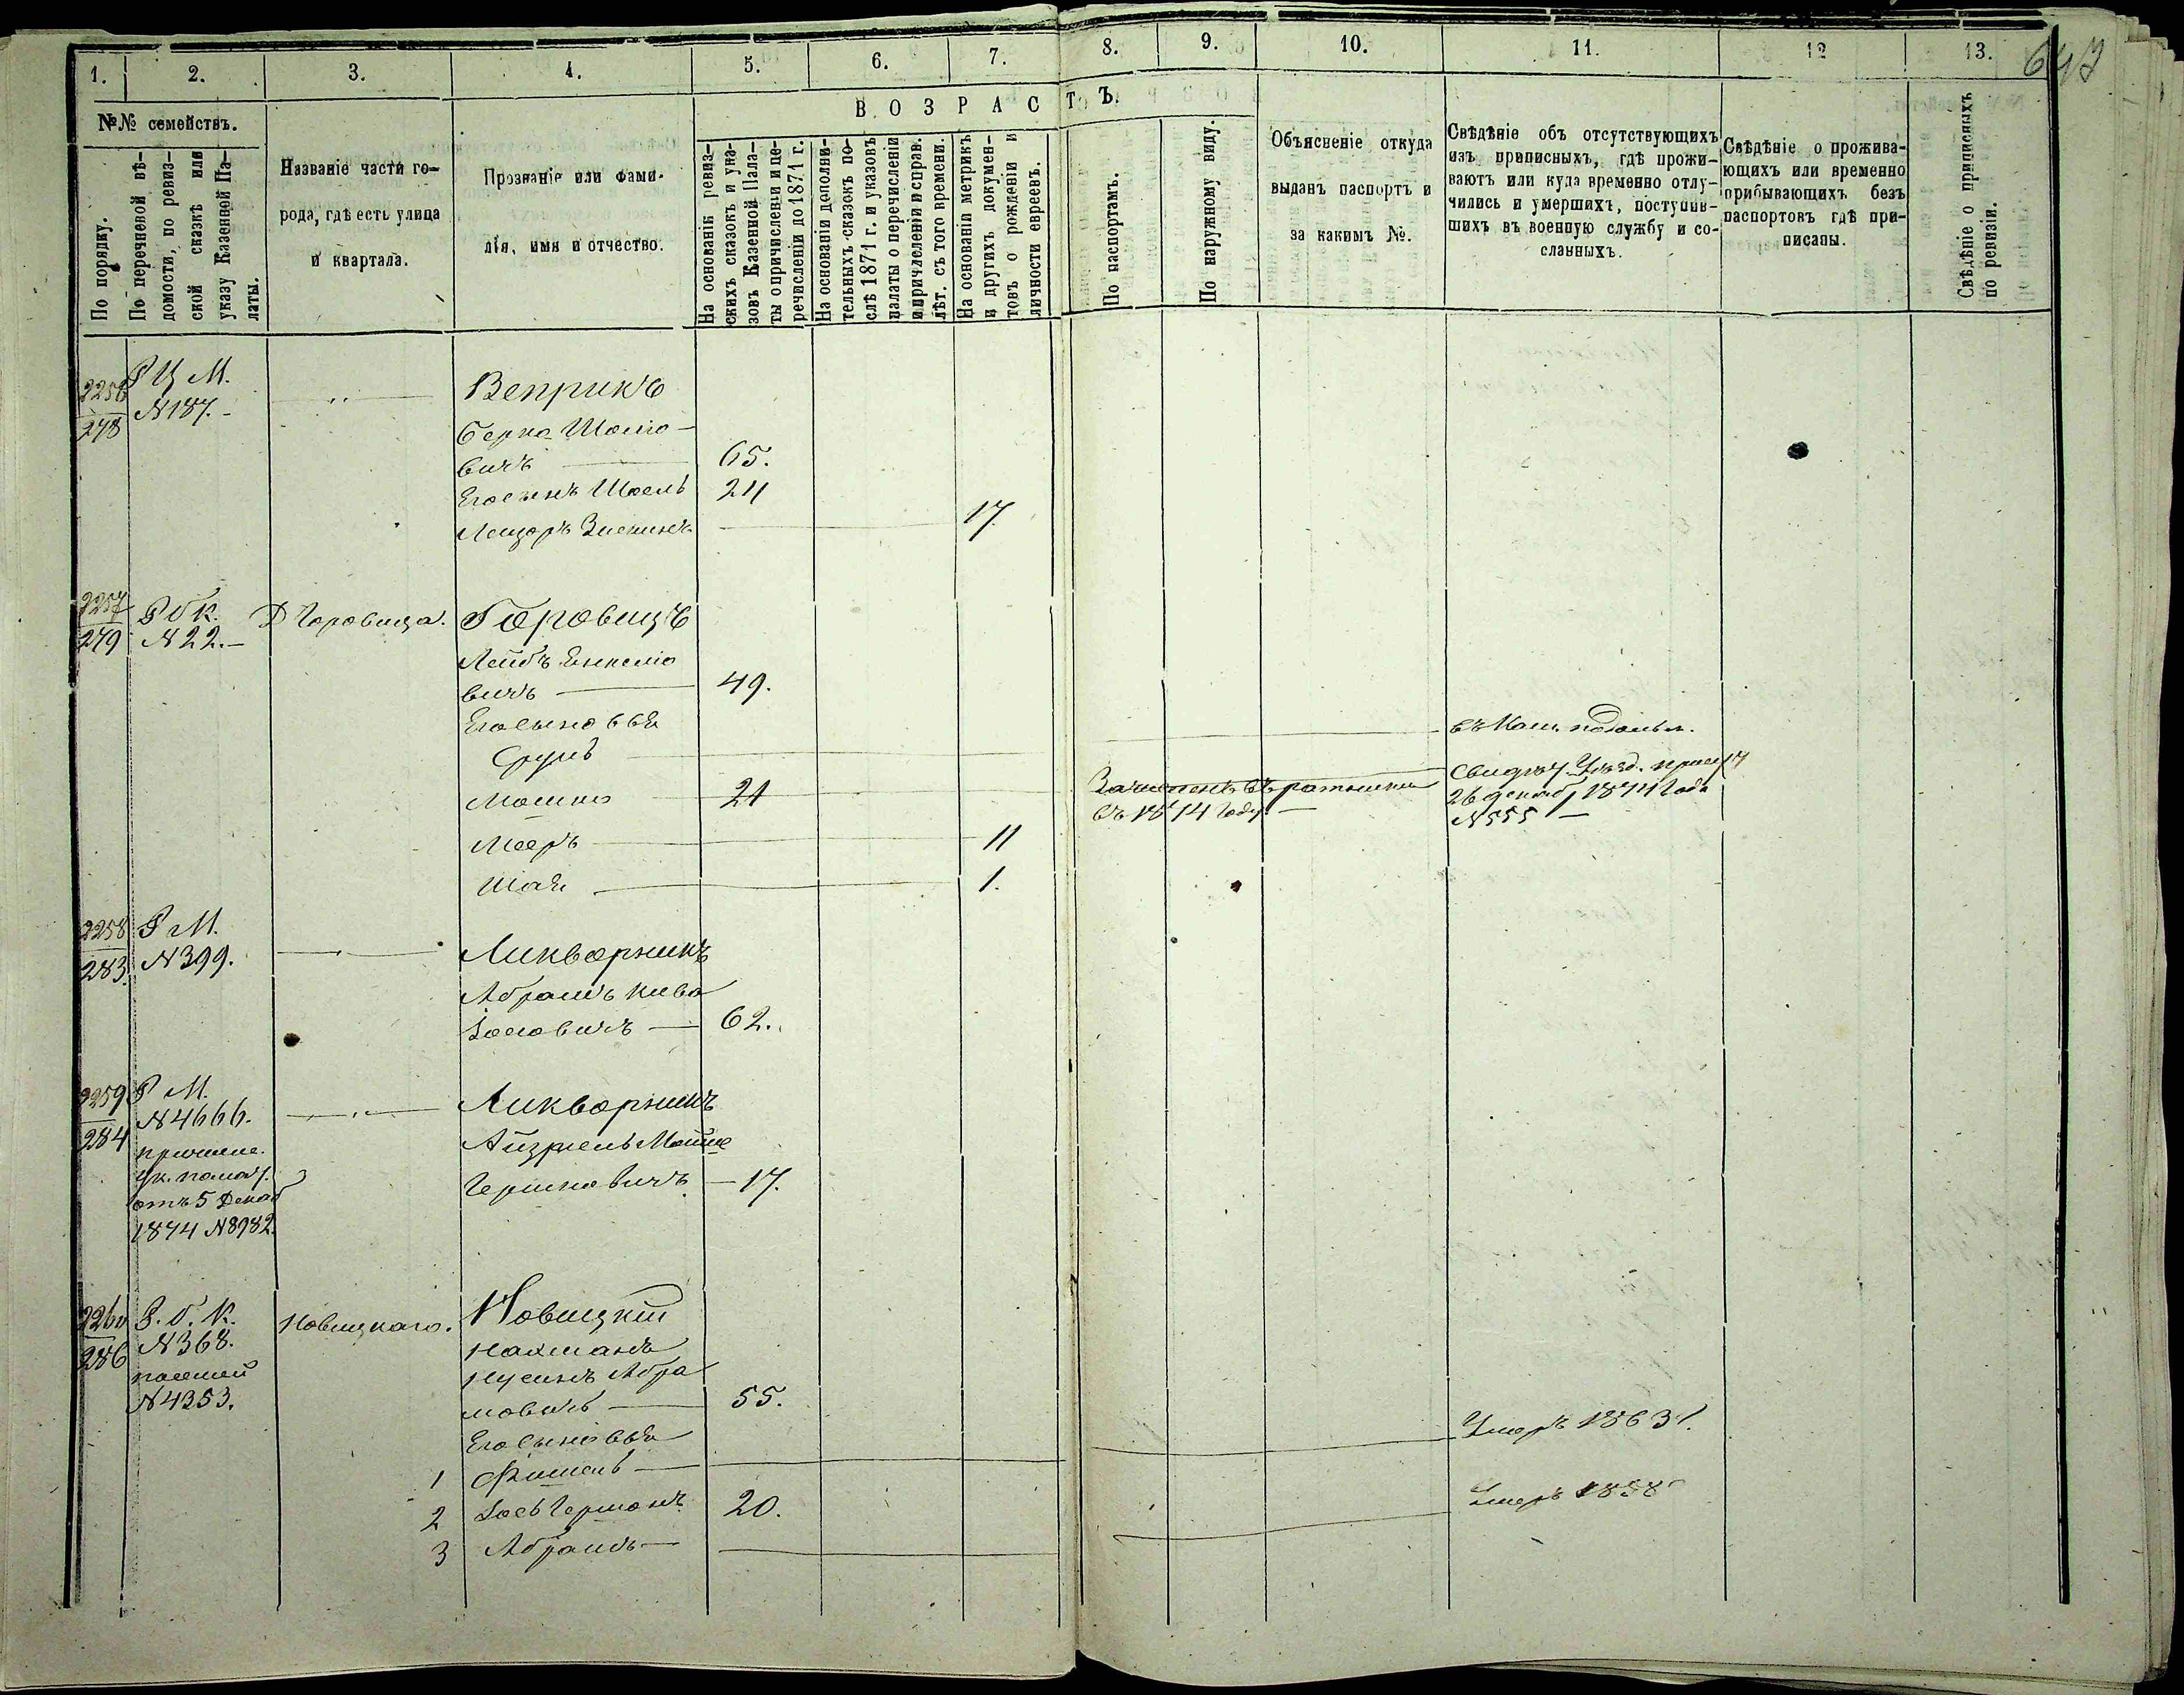 647
1. 2. 3. 4. 5. 6. 7. 8. 9. 10. 11. 12 13.
№№ семействъ.
По порядку.
По перечневой вѣ-
домости, по ревиз-
ской сказкѣ или
указу Казенной Па-
латы.
Названіе части го-
рода, гдѣ есть улица
и квартала.
Прозваніе или фами-
лія, имя и отчество.
ВОЗРАСТЪ.
На основаніи ревиз-
скихъ сказокъ и ука-
зовъ Казенной Пала-
ты о причисленіи и пе-
речисленіи до 1871 г.
На основаніи дополни-
тельныхъ сказокъ по-
слѣ 1871 г. и указовъ
палаты о перечисленіи
и причисленіи и справ.
лѣт. съ того времени.
На основаніи метрикъ
и другихъ докумен-
товъ о рожденіи и
личности евреевъ.
По паспортамъ.
По наружному виду.
Объясненіе откуда
выданъ паспортъ и
за какимъ №.
Свѣдѣніе объ отсутствующихъ
изъ приписныхъ, гдѣ прожи-
ваютъ или куда временно отлу-
чились и умершихъ, поступив-
шихъ въ военную службу и со-
сланныхъ.
Свѣдѣніе о прожива-
ющихъ или временно
прибывающихъ безъ
паспортовъ гдѣ при-
писаны.
Свѣдѣніе о приписныхъ
по ревизіи.
2256
278
М.
N 187.
Веприкъ
Берко Шоліо-
вичъ 65.
Его сынъ Шоель 24
Лейзоръ Зисинъ 17
2257
279
К.
N 22.
Горовица.
Горовицъ
Лейбъ Енкеліо
вичъ 49.
Его сыновья
Сруль
въ Кам. подольск.
Мошко 21
Зачисленъ въ ратники
въ 1874 году
Свидѣт. Уѣзд. присут
26 декаб 1874 года
N 555
Мееръ 11
Шая 1.
2258
283
Р М.
N 399.
Ликворникъ
Абрамъ Кива
Іосіовичъ 62.
2259
284
Р М.
N 4666.
причисле.
ук. палат.
отъ 5 Декаб
1874 N 8982.
Ликворникъ
Айзриель Мойше
Гершковичъ 17.
2260
286
К.
N 368.
N 4353.
Новицкаго.
Новицкій
Нахманъ
Нусинъ Абра
мовичъ 55.
Его сыновья
1 Фишель
Умеръ 1863 г.
2 Іосъ Гершонъ 20.
3 Абрамъ
Умеръ 1858